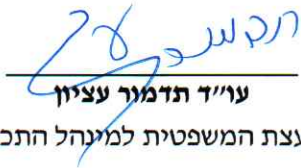 עו״ד תדמור עציון
עצת המשפטית למינהל התכ